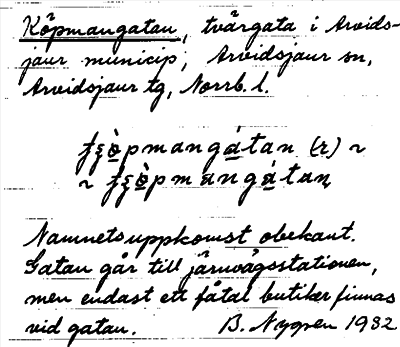 Köpmangatan, tvärgata i Arvids-
jaur municip, Arvidsjaur sn,
Arvidsjaur tg, Norrb. l.
ƫʂòpmangátan (r) ~
~ ƫʂòpmangátan
Namnets uppkomst obekant.
Gatan går till järnvägsstationen,
men endast ett fåtal butiker finnas
vid gatan. B. Nygren 1932